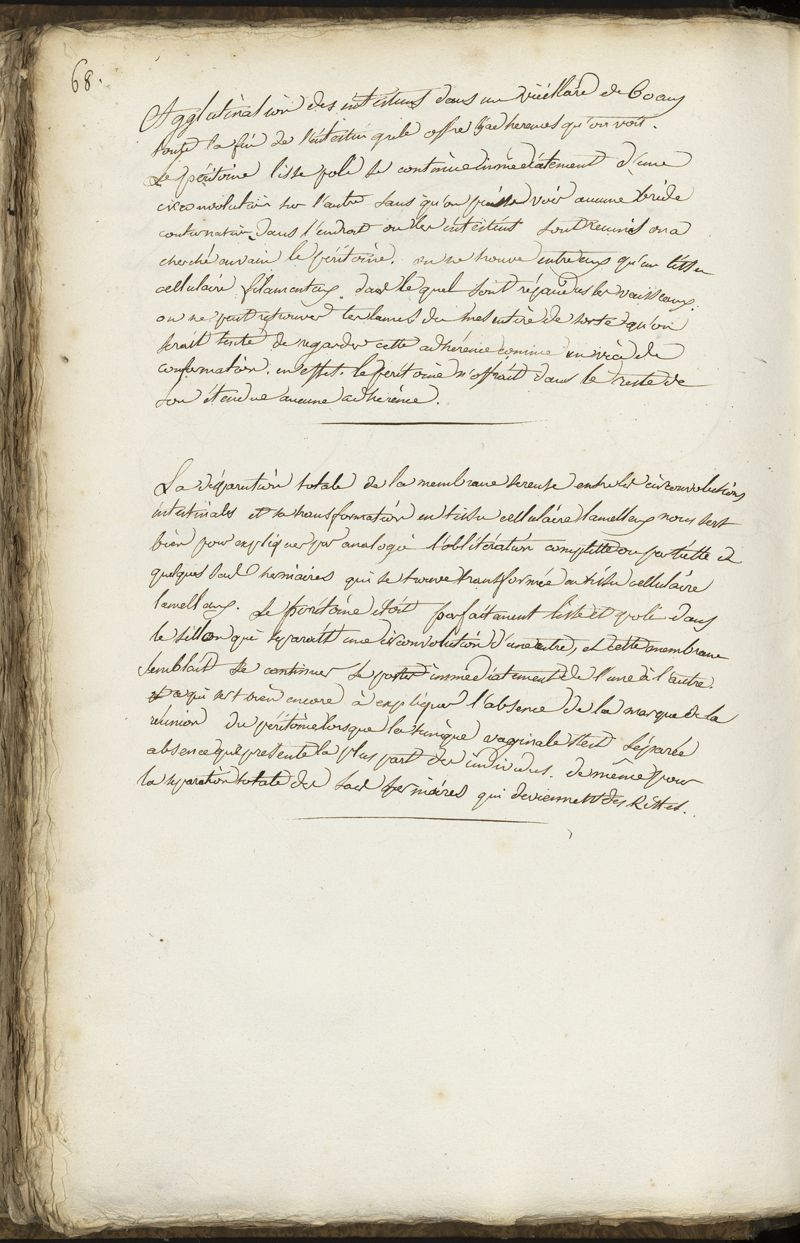 68.
Agglutination des intestins dans un vieillard de 60 ans
toute la fin de l'intestin grele offre l'adherences qu'on voit.
Le péritoine lisse poli se continue immédiatement d'une
circonvolution sur l'autre sans qu'on puisse voir aucune bride
contre nature dans l'endroit ou les intestins sont reunis on a
cherché envain le péritoine. on ne trouve entre eux qu'un tissu
cellulaire filamenteux dans lequel sont répandus les vaisseaux.
on ne peut retrouver les lames du mesentère de sorte qu'on
serait tenté de regarder cette adhérence comme un vice de
conformation. en effet le péritoine n'offrait dans le reste de
son étendue aucune adhérence.
La disparution totale de la membrane sereuse entre les circonvolutions
intestinales et sa transformation en tissu cellulaire lamelleux nous sert
bien pour expliquer par analogie l'oblitération complette ou partielle d
quelques sacs herniaires qui se trouve transformée en tissu cellulaire
lamelleux. Le péritoine étoit parfaitement lisse et poli dans
le sillon qui séparait une circonvolution d'une autre, et cette membrane
semblait se continuer se porter immédiatement de l'une à l'autre.
ce qui sert bien encore à expliquer l'absence de la marque de la
réunion du péritoine lorsque la tunique vaginale s'est séparée
absence que presente la plus part des individus. de même pour
la separation totale des sacs herniaires qui deviennent des kistes.